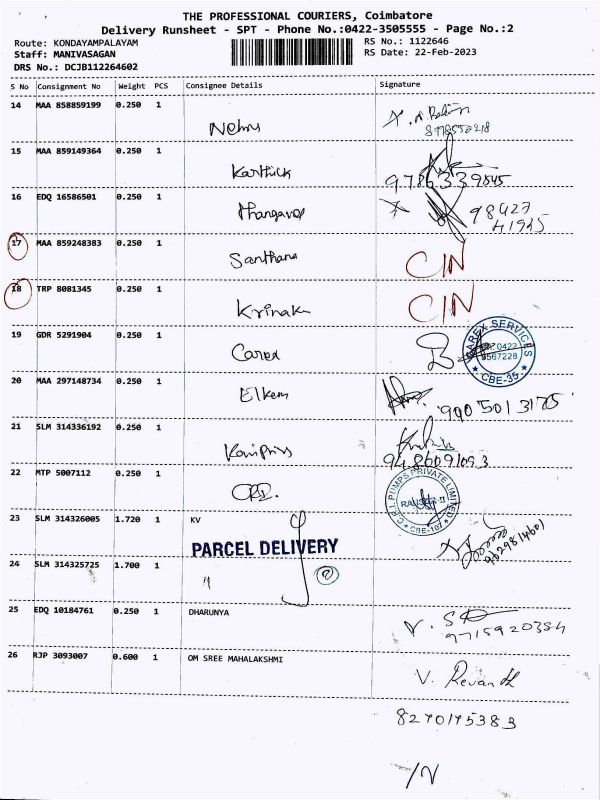 THE PROFESSIONAL COURIERS, Coimbatore
Delivery Runsheet - SPT - Phone No.:0422-3505555 - Page No.:2
Route: KONDAYAMPALAYAM RS No.: 1122646
Staff: MANIVASAGAN RS Date: 22-Feb-2023
DRS No.: DCJB112264602
S No Consignment No Weight PCS Consignee Details Signature
14 MAA 858859199 0.250 1
15 MAA 859149364 0.250 1 Karthick
16 EDQ 16586501 0.250 1 Thangavel 98427
17 MAA 859248383 0.250 1 Santhana CIN
18 TRP 8081345 0.250 1 CIN
19 GDR 5291904 0.250 1
20 MAA 297148734 0.250 1 Elkem 9005013175
21 SLM 314336192 0.250 1
9486091093
22 MTP 5007112 0.250 1 CRI.
C.R.I. PUMPS PRIVATE LIMITED
23 SLM 314326005 1.720 1 KV
PARCEL DELIVERY
24 SLM 314325725 1.700 1 "
2
25 EDQ 10184761 0.250 1 DHARUNYA
9715920384
26 RJP 3093007 0.600 1 OM SREE MAHALAKSHMI V. Revanth
8270175383